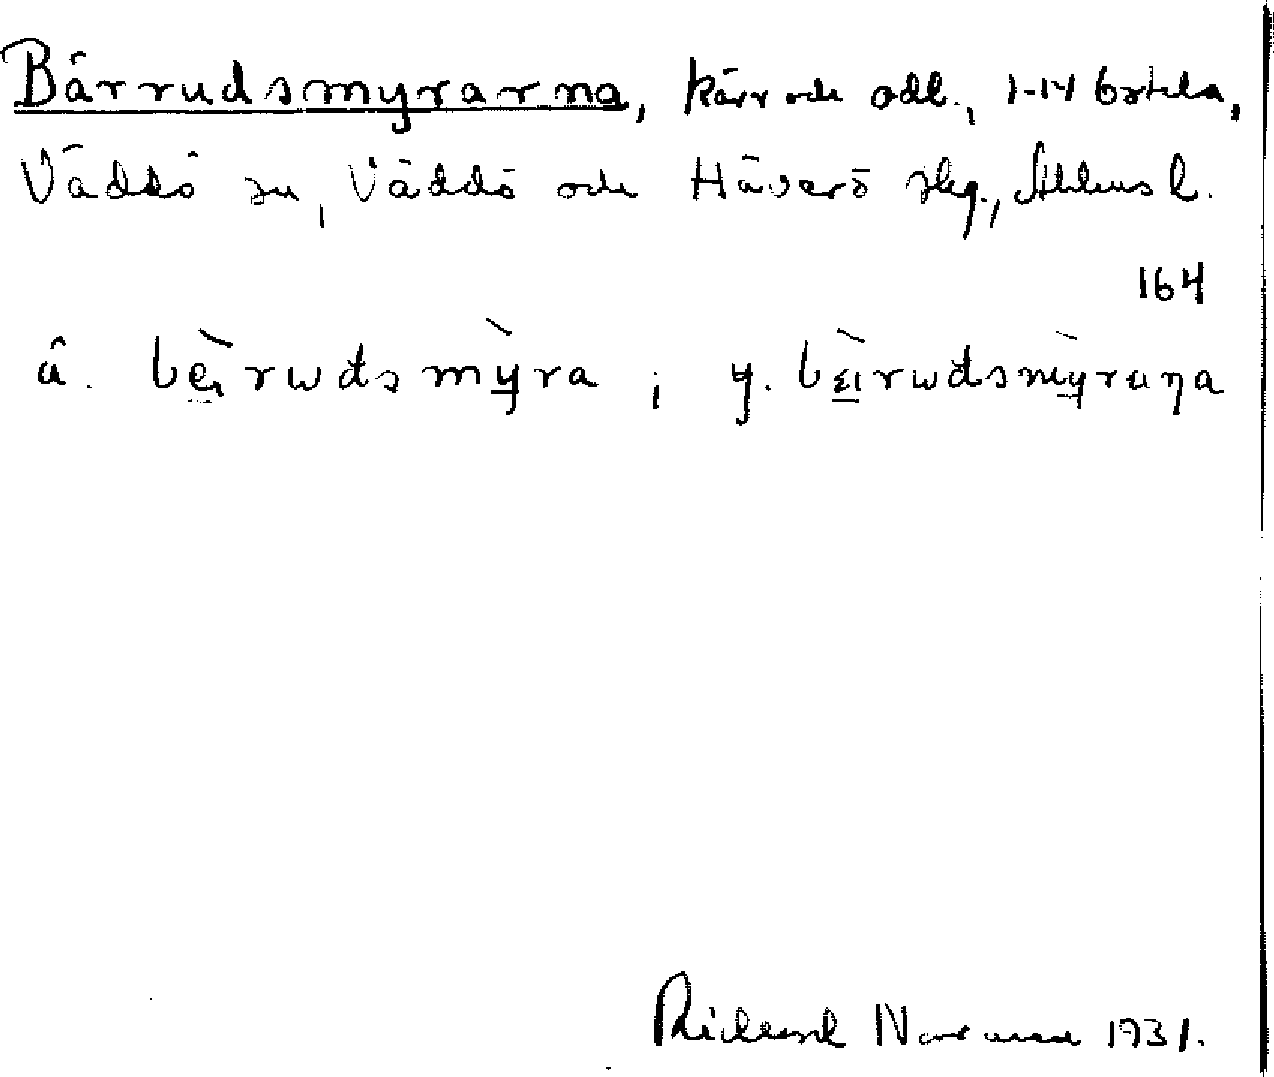 Bärrudsmyrarna, kärr och odl., 1-14 Östela,
Väddö sn, Väddö och Häverö skg., Sthlms l.
164
ä. bèrudsmỳra ; y. bèrudsmỳraṇa
Rickard Norman 1931.